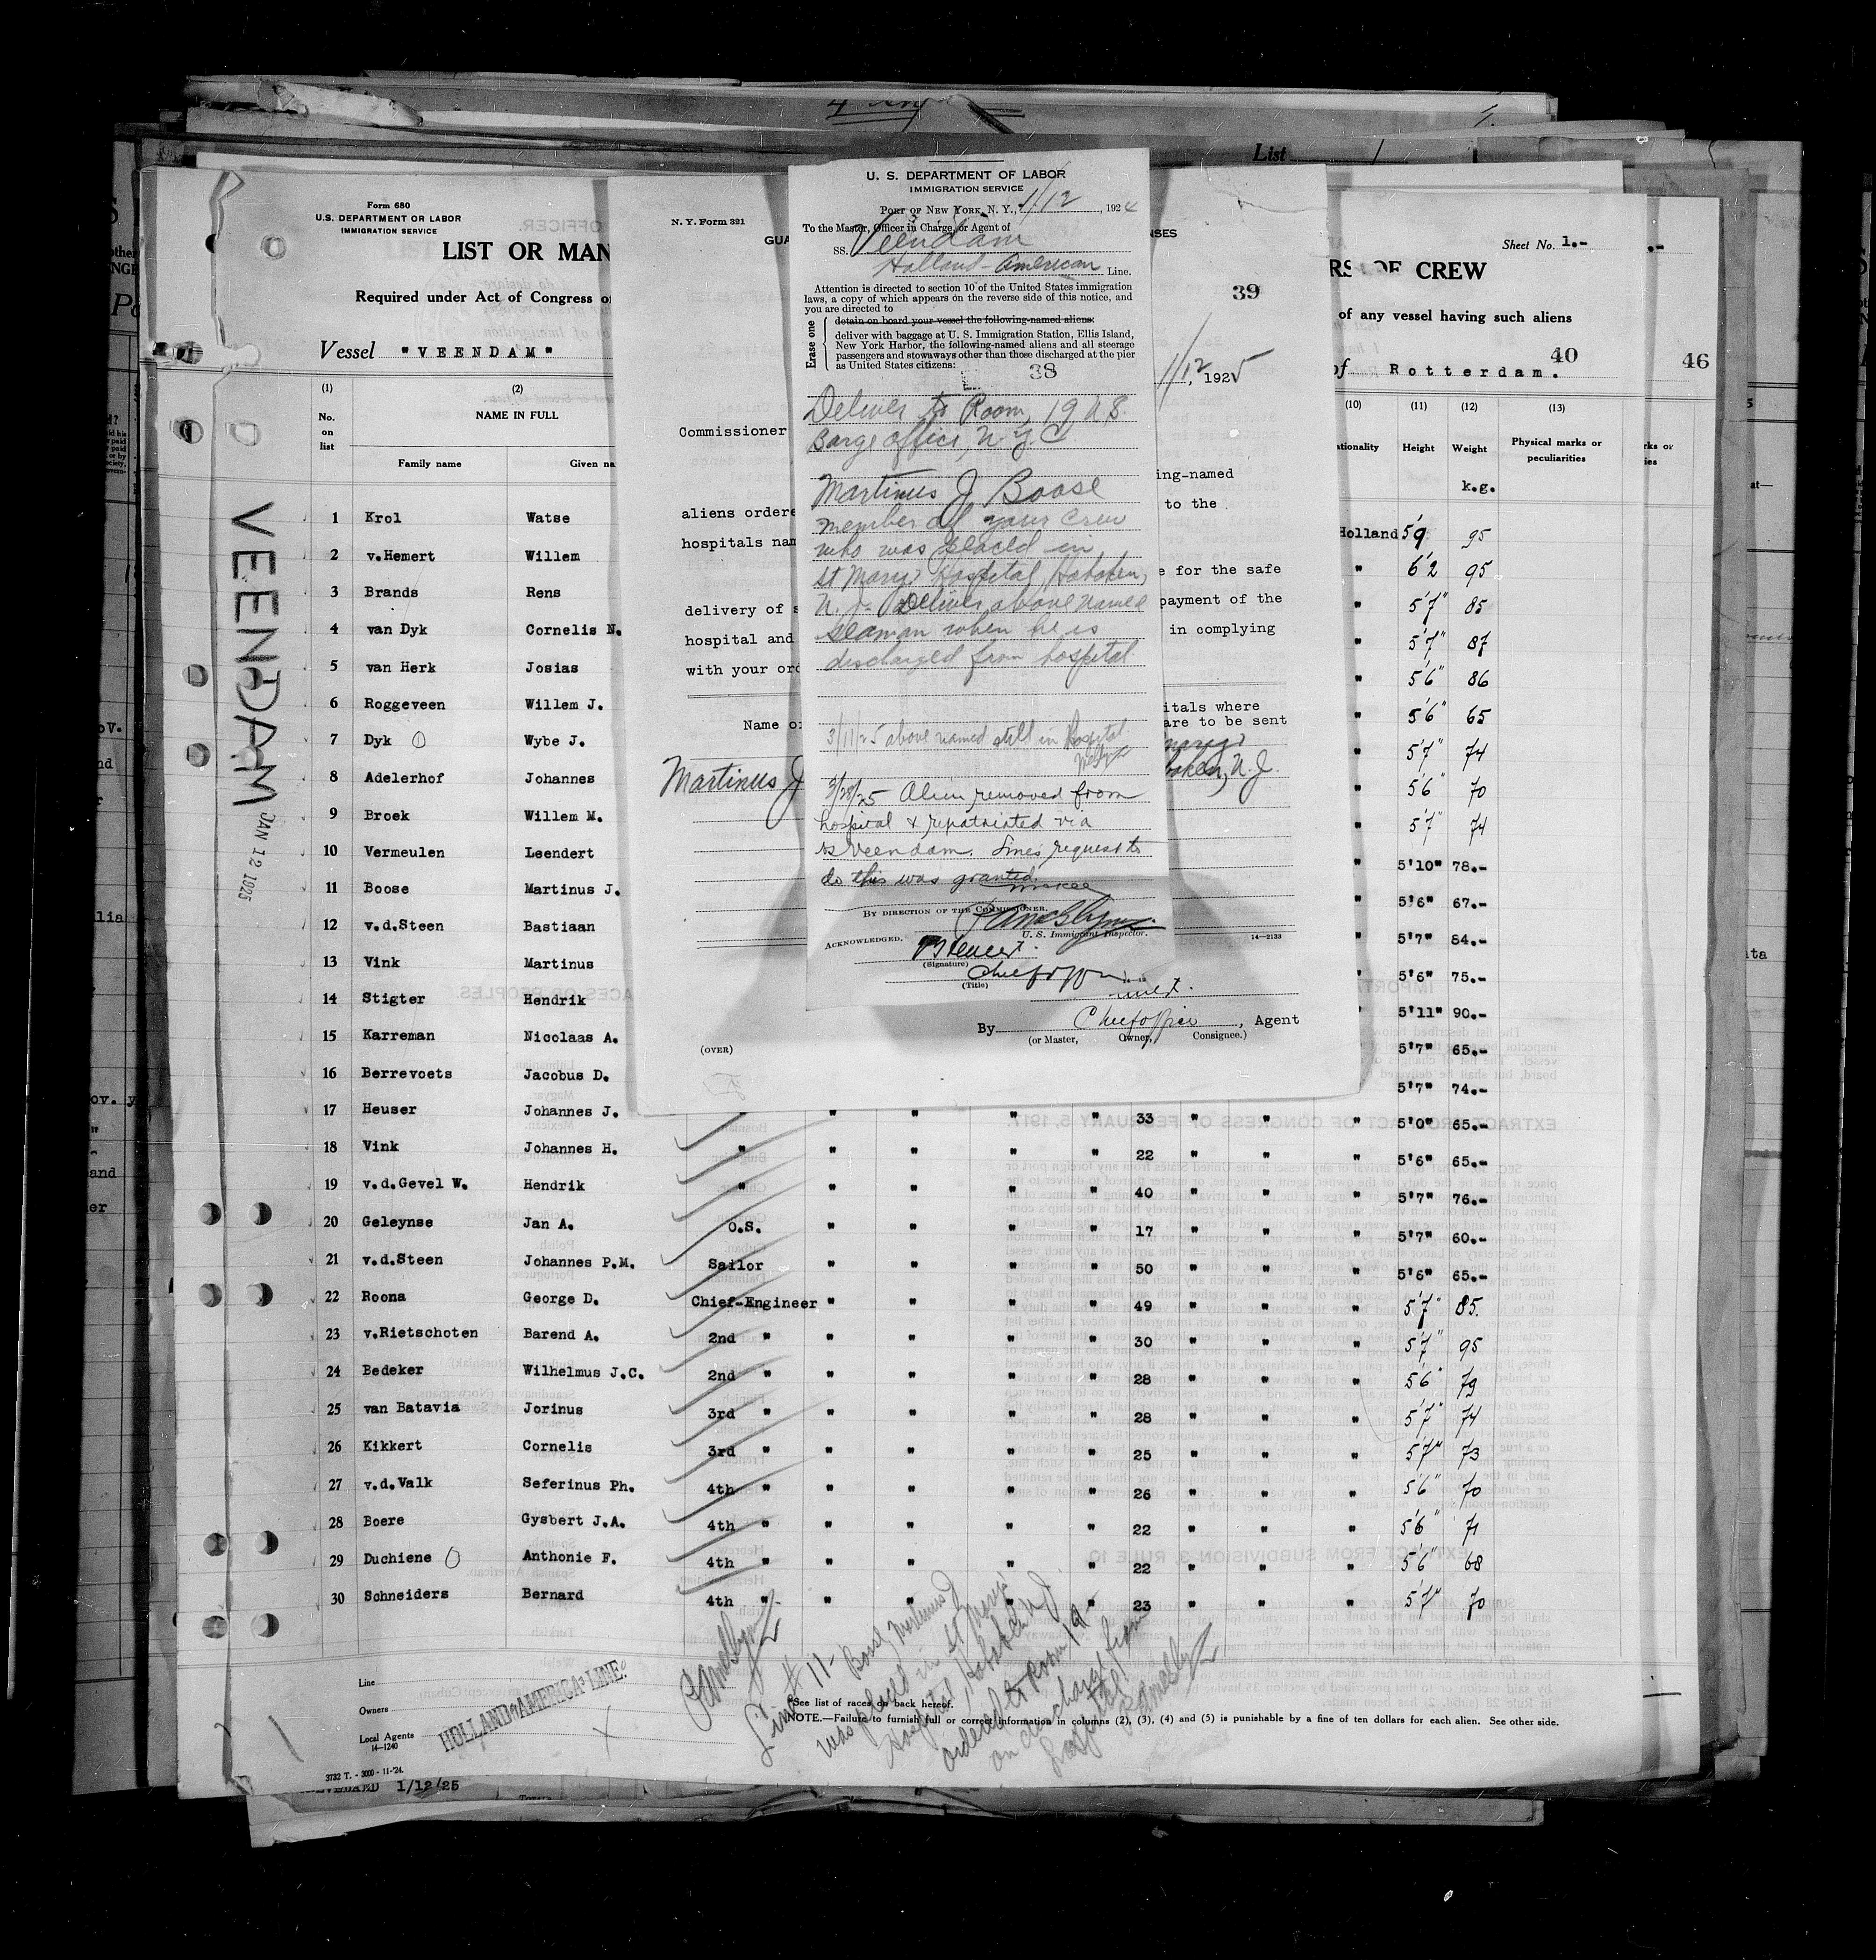 4
List
Form 680
U.S. DEPARTMENT OR LABOR
IMMIGRATION SERVICE
LIST OR MAN
Required under Act of Congress o
Vessel "VEENDAM"
(1)
(2)
No. on list
NAME IN FULL
Family name
Given na
VEENDAM
JAN 12 1925
1 Krol Watse
2 v.Hemert Willem
3 Brands Rens
4 van Dyk Cornelis N.
5 van Herk Josias
6 Roggeveen Willem J.
7 Dyk Wybe J.
8 Adelerhof Johannes
9 Broek Willem M.
10 Vermeulen Leendert
11 Boose Martinus J.
12 v.d.Steen Bastiaan
13 Vink Martinus
14 Stigter Hendrik
15 Karreman Nicolaas A.
16 Berrevoets Jacobus D.
17 Heuser Johannes J. " " " " 33 " " " 5'0" 65.-
18 Vink Johannes H. " " " " " 22 " " " 5'6" 65.-
19 v.d.Gevel W. Hendrik " " " " " 40 " " " 5'7" 76.-
20 Geleynse Jan A. O.S. " " " " 17 " " " 5'7" 60.-
21 v.d.Steen Johannes P.M. Sailor " " " " 50 " " " 5'6" 65.-
22 Roona George D. Chief-Engineer " " " " 49 " " " 5'7" 85.
23 v.Rietschoten Barend A. 2nd " " " " " 30 " " " 5'7" 95
24 Bedeker Wilhelmus J.C. 2nd " " " " " 28 " " " 5'6" 79
25 van Batavia Jorinus 3rd " " " " " 28 " " " 5'7" 74
26 Kikkert Cornelis 3rd " " " " " 25 " " " 5'7" 73
27 v.d.Valk Seferinus Ph. 4th " " " " " 26 " " " 5'6" 70
28 Boere Gysbert J.A. 4th " " " " " 22 " " " 5'6" 71
29 Duchiene Anthonie F. 4th " " " " " 22 " " " 5'6" 68
30 Schneiders Bernard 4th " " " " " 23 " " " 5'7" 70
Line
Owners
Local Agents
14—1240
HOLLAND-AMERICA-LINE.
3732 T. - 3000 - 11-'24.
1/12/25
Line # 11- Boose Martinus J
was placed in St Marys
Hospital Hoboken N.J.
ordered to Room 19
on discharge from
hospital
*See list of races on back hereof.
NOTE.—Failure to furnish full or correct information in columns (2), (3), (4) and (5) is punishable by a fine of ten dollars for each alien. See other side.
N. Y. Form 321
GUA
NSES
39
1/12, 1925
Commissioner
ing-named
aliens ordere
to the
hospitals nam
e for the safe
delivery of s
payment of the
hospital and
in complying
with your ord
itals where
Name of
are to be sent
Marys
Martinus J
boken, N.J.
By Chief officer, Agent
(or Master, Owner, Consignee.)
(OVER)
U. S. DEPARTMENT OF LABOR
IMMIGRATION SERVICE
PORT OF NEW YORK, N. Y., 1/12, 192
To the Master, Officer in Charge, or Agent of
SS. Veendam
Holland-American Line.
Attention is directed to section 10 of the United States immigration
laws, a copy of which appears on the reverse side of this notice, and
you are directed to
Erase one
detain on board your vessel the following-named aliens:
deliver with baggage at U. S. Immigration Station, Ellis Island,
New York Harbor, the following-named aliens and all steerage
passengers and stowaways other than those discharged at the pier
as United States citizens:
38
Deliver to Room, 19 U.S.
Barge office, N Y C
Martinus J Boose
member of your crew
who was placed in
St Marys Hospital Hoboken,
N. J. Deliver above named
seaman when he is
discharged from hospital
3/11/25 above named still in Hospital
3/28/25 Alien removed from
hospital & repatriated via
ss Veendam. Lines request to
do this was granted.
McKee
BY DIRECTION OF THE COMMISSIONER.
U. S. Immigrant Inspector.
14—2133
ACKNOWLEDGED.
(Signature)
Chief officer
(Title)
Sheet No. 1.-
.-
RS OF CREW
of any vessel having such aliens
40
46
of Rotterdam.
(10) (11) (12) (13)
tionality Height Weight Physical marks or peculiarities
rks or
ies
k.g.
Holland 5'9 95
" 6'2 95
" 5'7" 85
" 5'7" 87
" 5'6" 86
" 5'6" 65
" 5'7" 74
" 5'6" 70
" 5'7" 74
" 5'10" 78.-
" 5'6" 67.-
" 5'7" 84.-
" 5'6" 75.-
5'11" 90.-
" 5'7" 65.-
" 5'7" 74.-